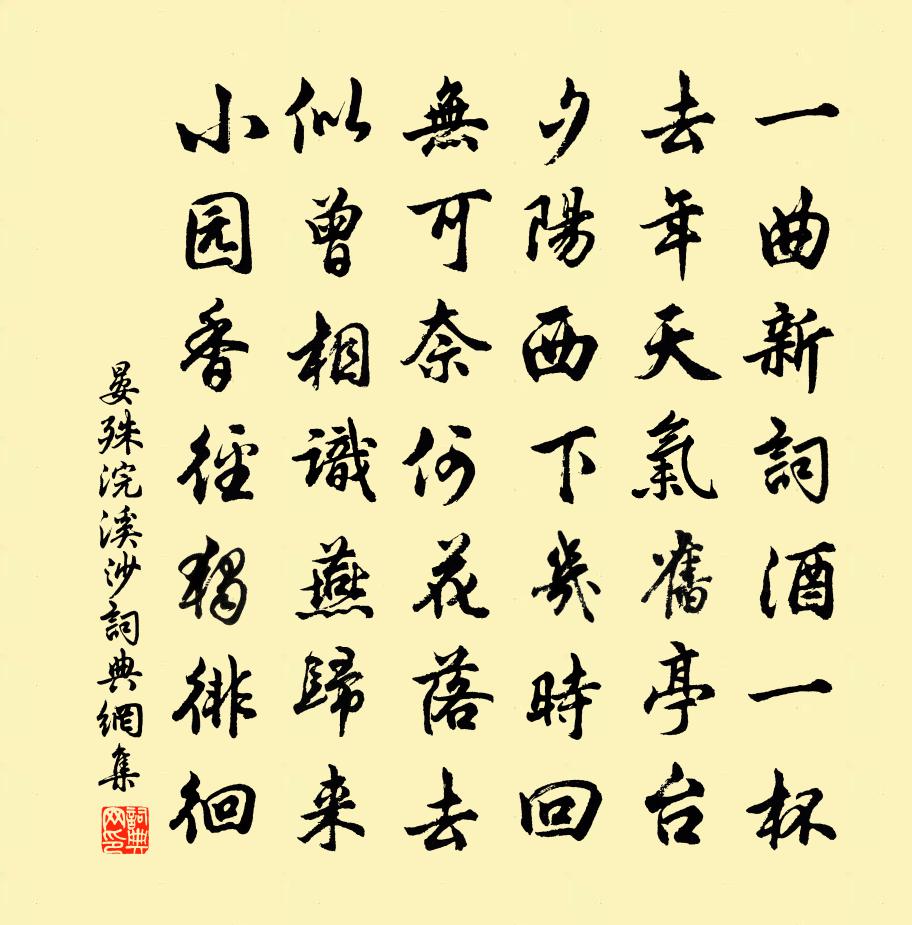 一曲新詞酒一杯
去年天氣舊亭台
夕陽西下幾時回
無可奈何花落去
似曾相識燕歸来
小园香徑獨徘徊
晏殊浣溪沙詞典網集
詞典网印